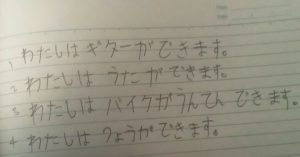 1 わたしは ギターが できます。
2 わたしは うたが できます。
3 わたしは バイクが うんてん できます。
4 わたしは りょうが できます。